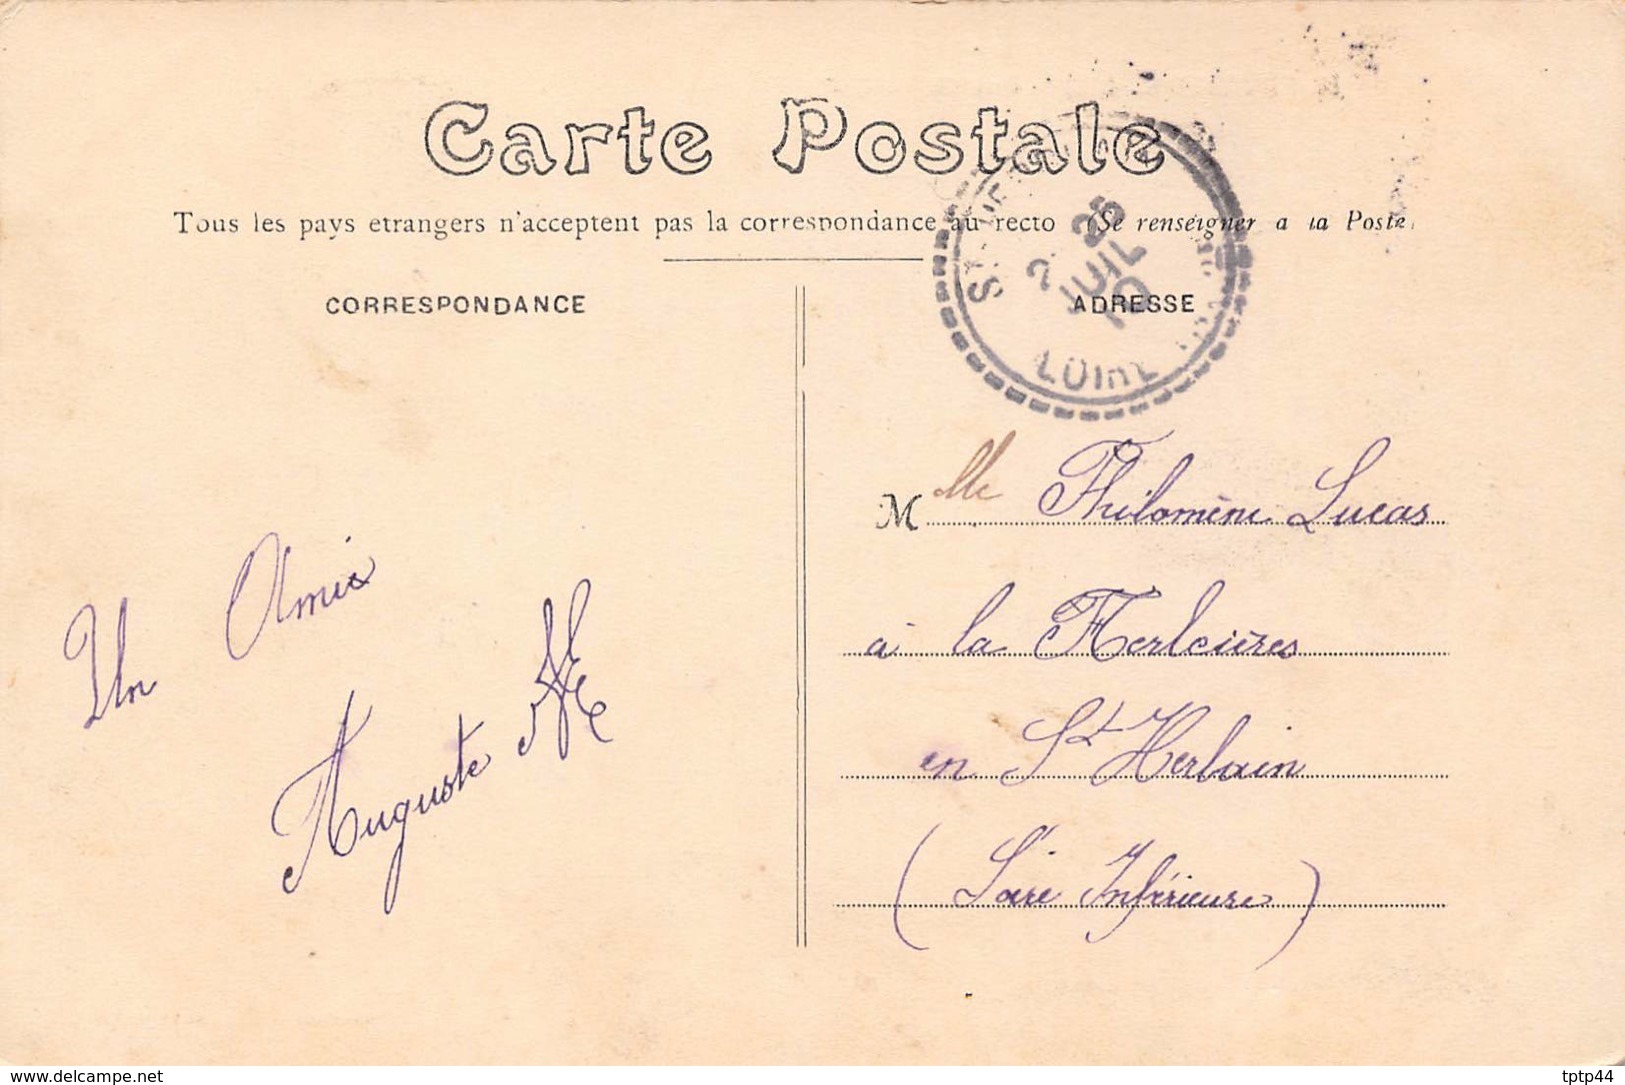 Carte Postale
Tous les pays etrangers n'acceptent pas la correspondance au recto (Se renseigner a la Poste)
CORRESPONDANCE
ADRESSE
ST
2 26
JUIL
10
LOIRE
Un Amie
Auguste
Mlle Philomène Lucas
à la
en St Herlain
(Loire Inférieure)
www.delcampe.net
tptp44